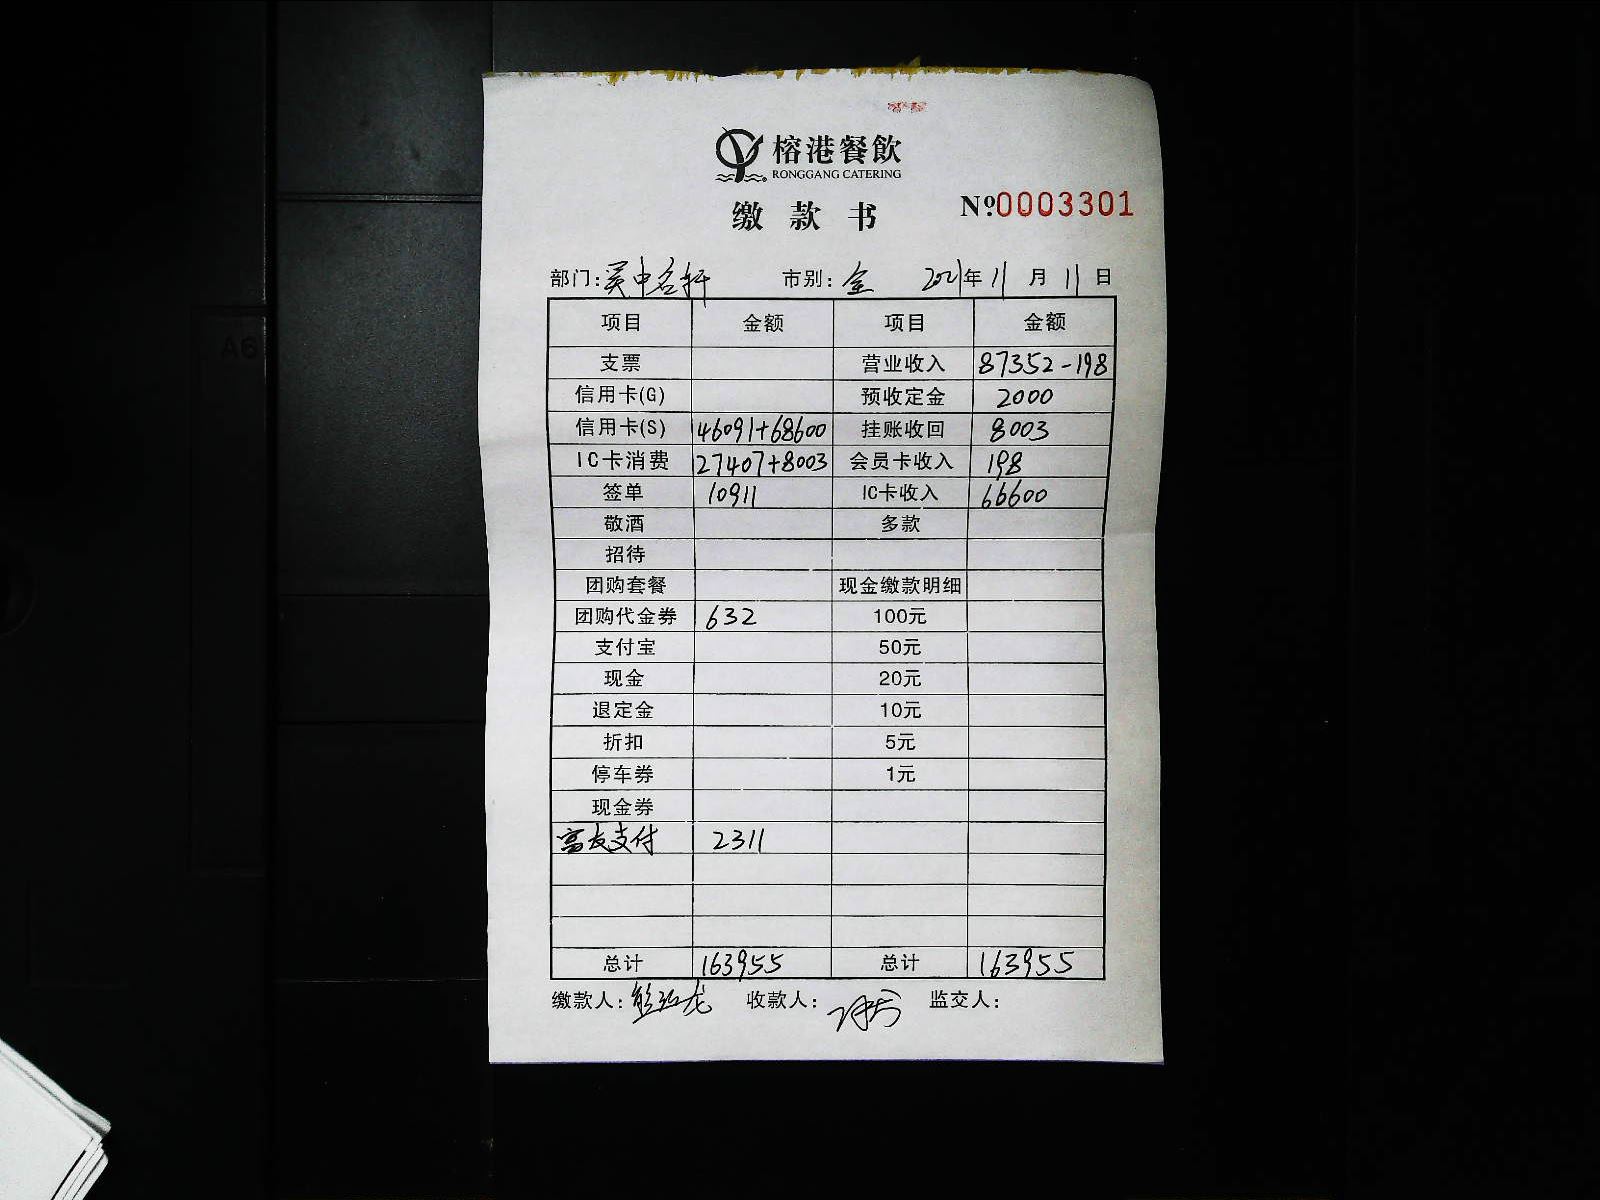 榕港餐飲
RONGGANG CATERING
缴款书
Nº0003301
部门:吴中名轩 市别:全 2021年11月11日
项目 金额 项目 金额
支票 营业收入 87352-198
信用卡(G) 预收定金 2000
信用卡(S) 46091+68600 挂账收回 8003
IC卡消费 27407+8003 会员卡收入 198
签单 10911 IC卡收入 66600
敬酒 多款
招待
团购套餐 现金缴款明细
团购代金券 632 100元
支付宝 50元
现金 20元
退定金 10元
折扣 5元
停车券 1元
现金券
富友支付 2311
总计 163955 总计 163955
缴款人: 收款人: 监交人:
A6